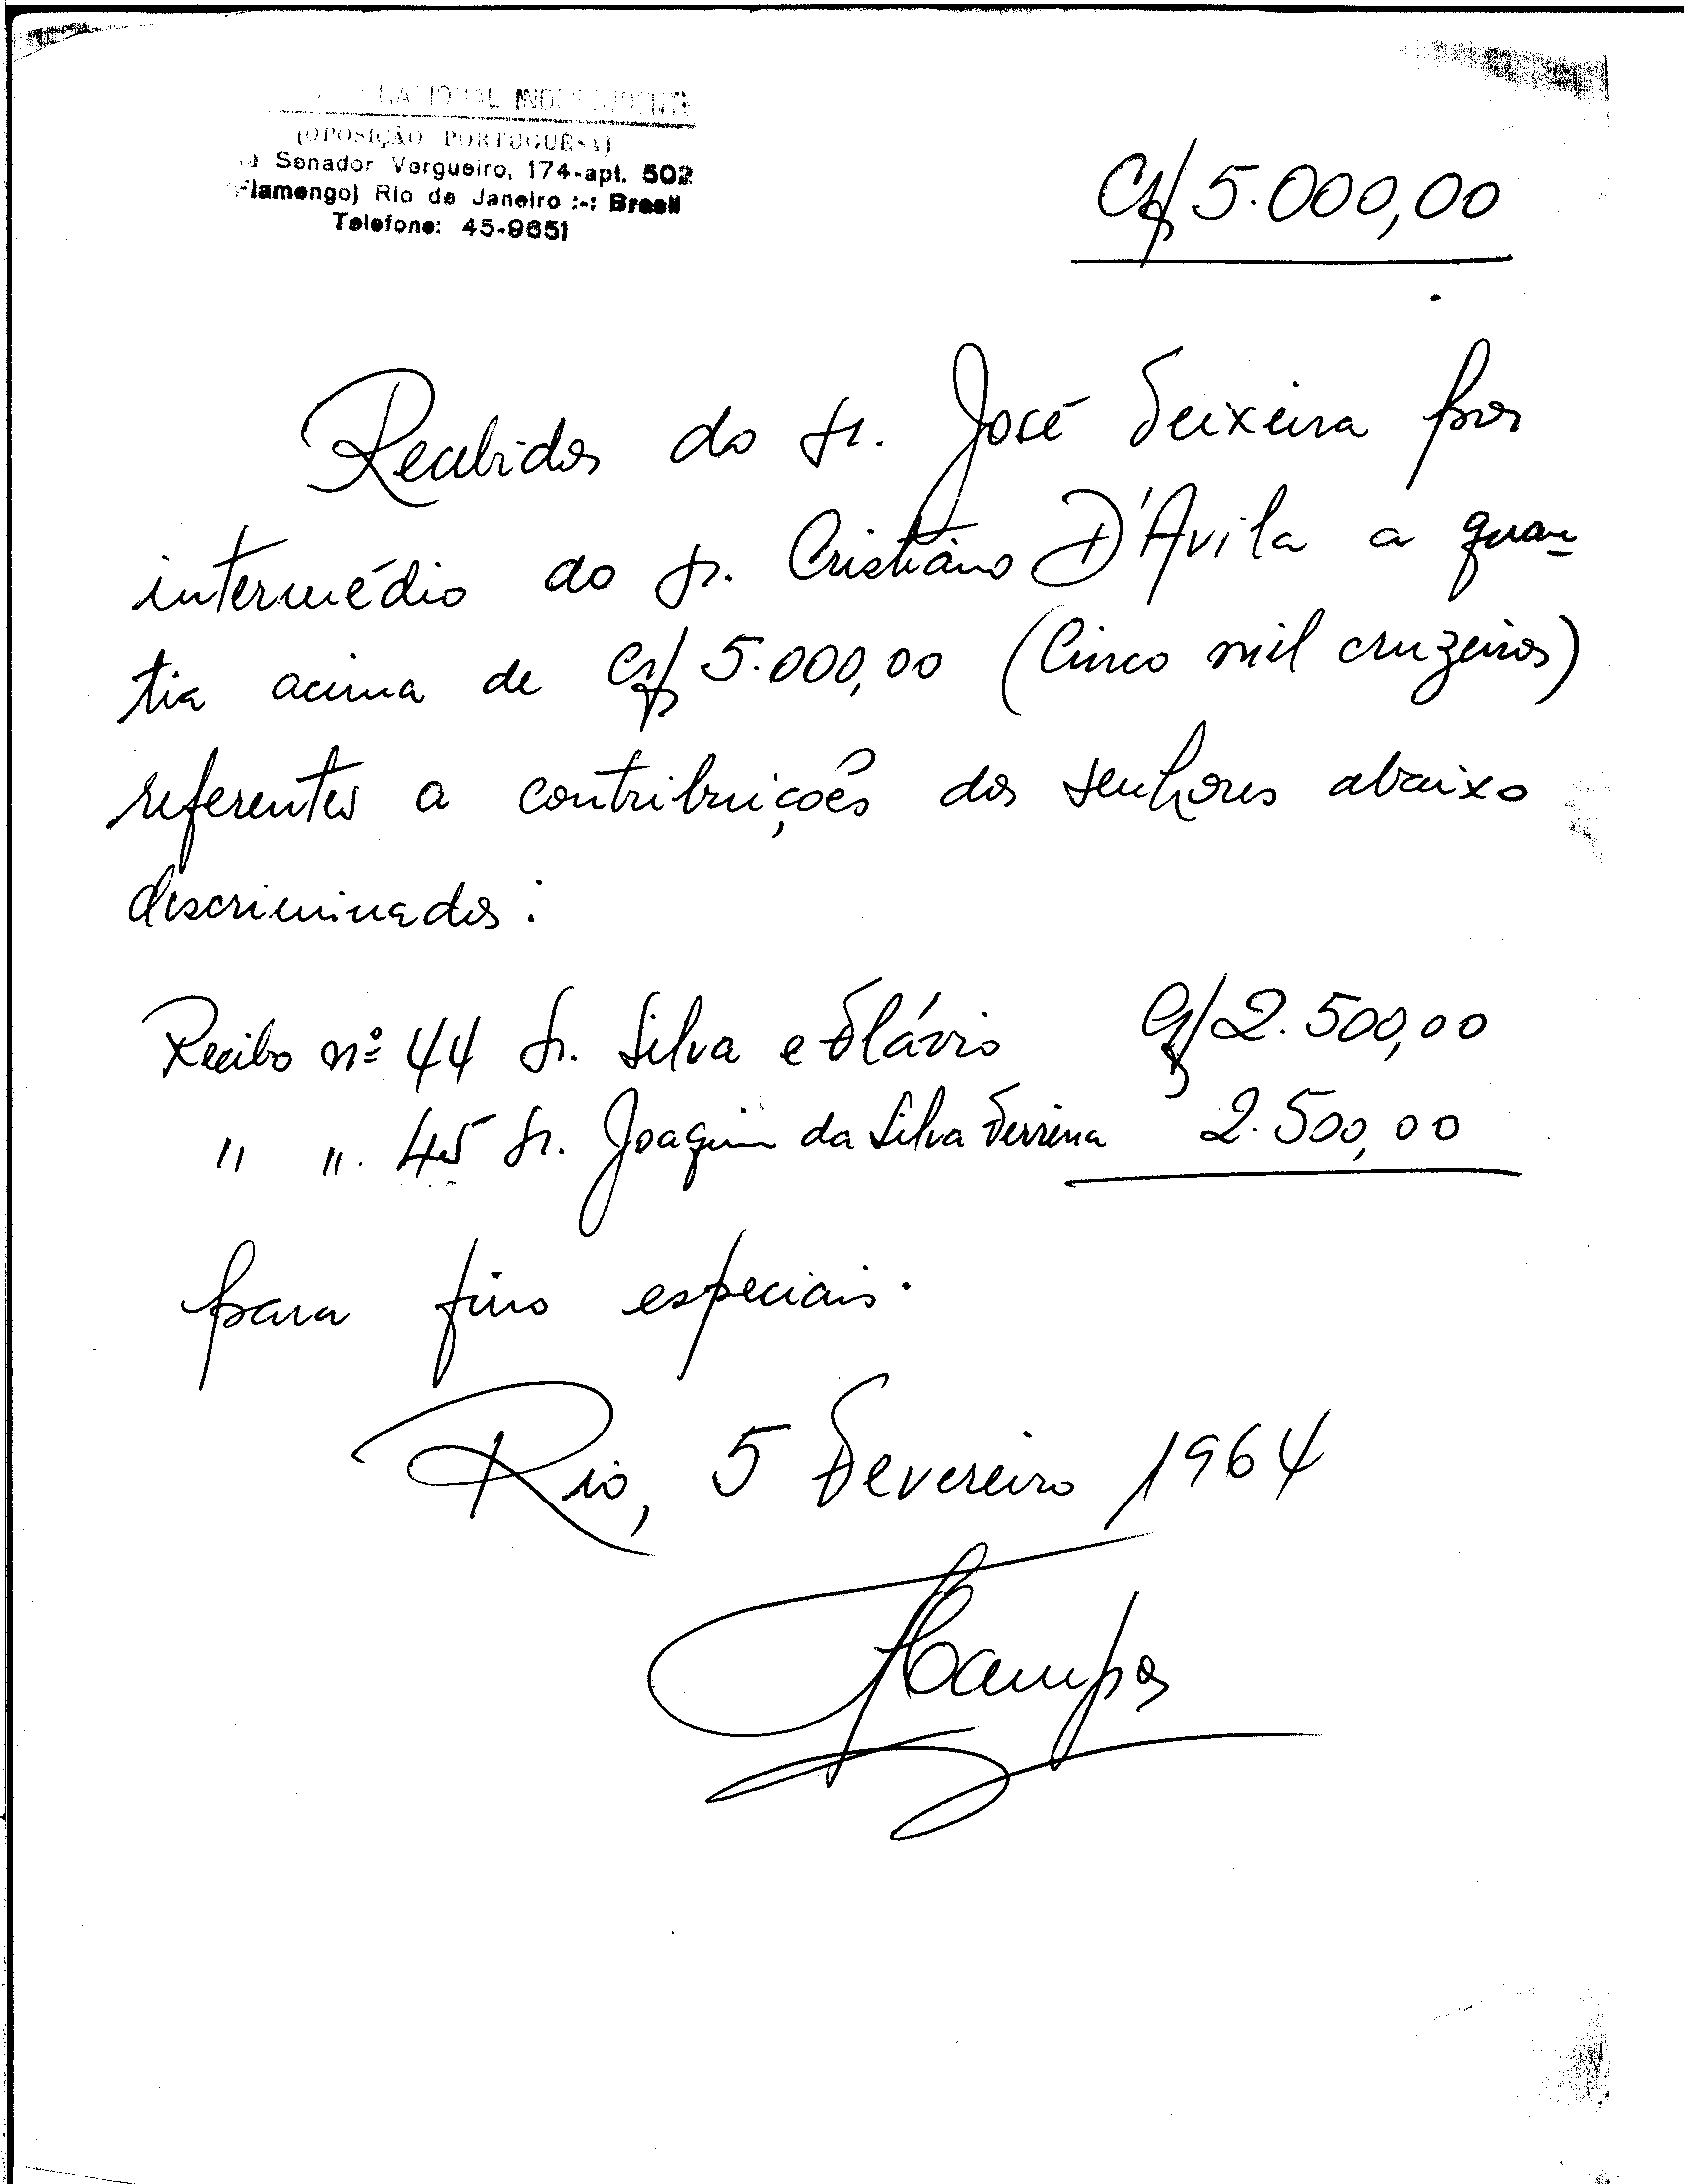 NACIONAL INDEPENDENTE
(OPOSIÇÃO PORTUGUÊSA)
Senador Vergueiro, 174-apt. 502
Flamengo) Rio de Janeiro :-: Brasil
Telefone: 45-9651
Cr$ 5.000,00
Recebidos do Sr. José Teixeira por
intermédio do Sr. Cristiano D'Avila a quan-
tia acima de Cr$ 5.000,00 (Cinco mil cruzeiros)
referentes a contribuições dos senhores abaixo
discriminados:
Recibo nº 44 Sr. Silva e Flávio Cr$ 2.500,00
" ". 45 Sr. Joaquim da Silva Ferreira 2.500,00
para fins especiais.
Rio, 5 Fevereiro 1964
Campos